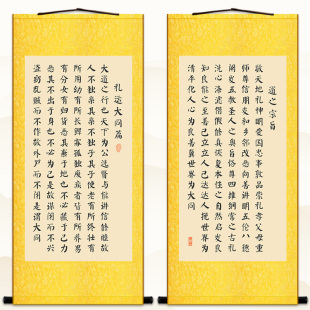 道之宗旨
敬天地礼神明爱国忠事敦品崇礼孝父母重
师尊信朋友和乡邻改恶向善讲明五伦八德
阐发五教圣人之奥旨恪尊四维纲常之古礼
洗心涤虑借假修真恢复本性之自然启发良
知良能之至善己立立人己达达人挽世界为
清平化人心为良善冀世界为大同
礼运大同篇
大道之行也天下为公选贤与能讲信修睦故
人不独亲其亲不独子其子使老有所终壮有
所用幼有所长鳏寡孤独废疾者皆有所养男
有分女有归货恶其弃于地也不必藏于己力
恶其不出于身也不必为己是故谋闭而不兴
盗窃乱贼而不作故外户而不闭是谓大同